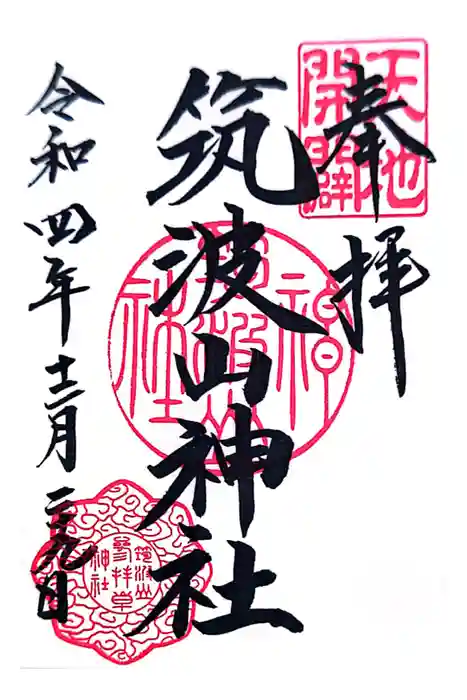 奉拝
天地
開闢
筑波山神社
筑波山神社
令和四年十二月二十九日
筑波山
参拝章
神社